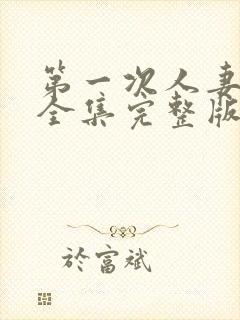 第一次人妻
全集完整版
於富斌